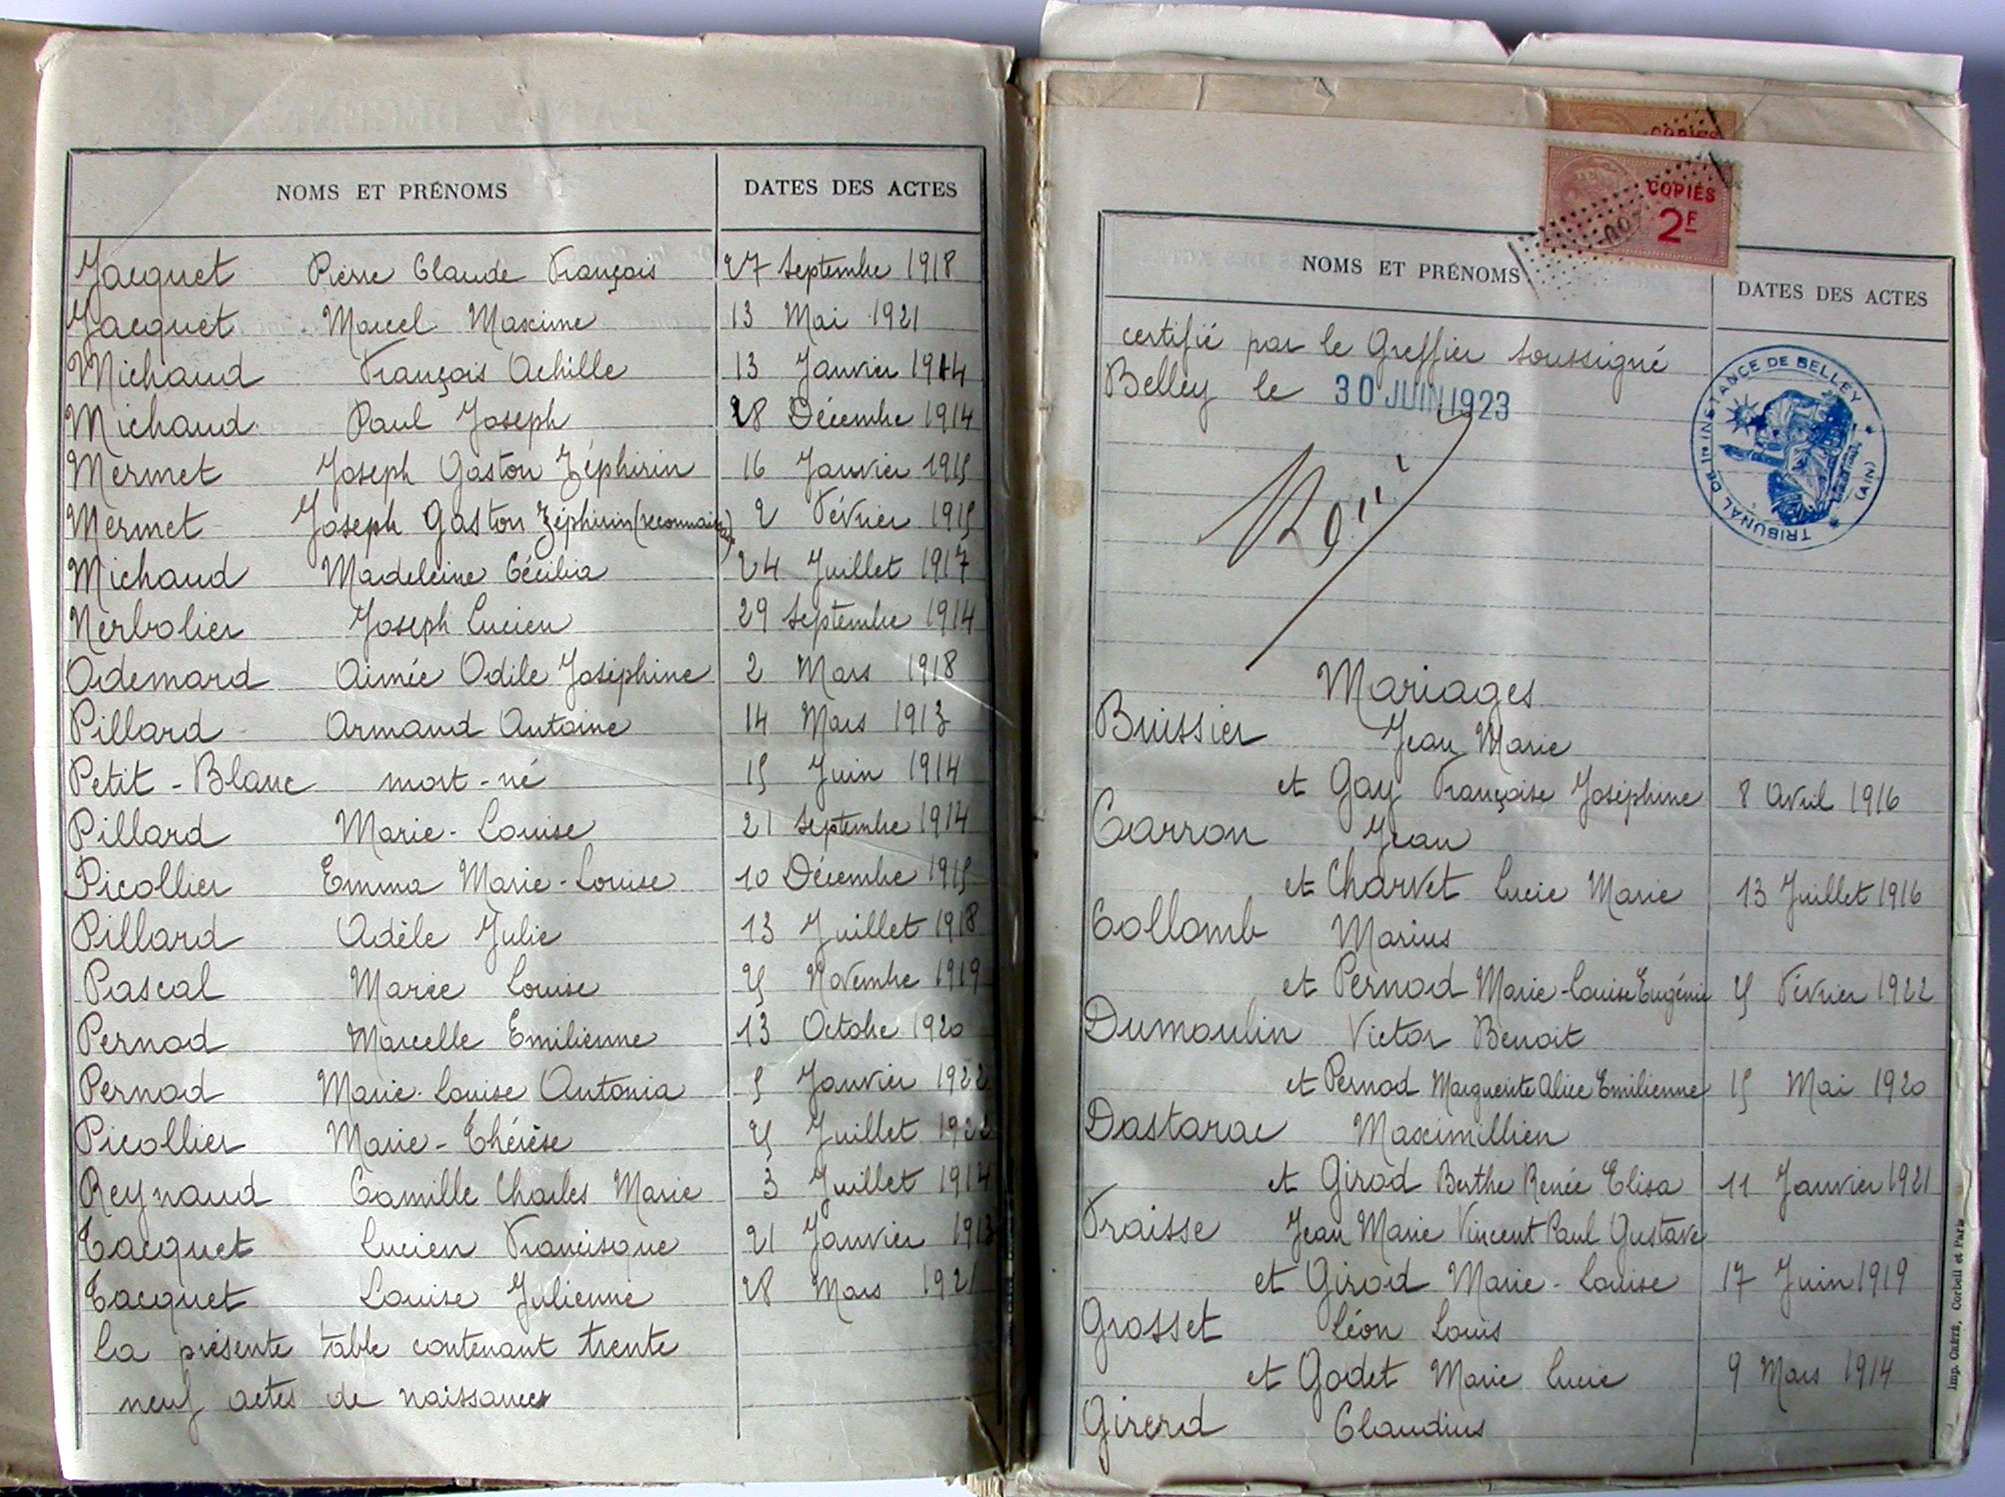 NOMS ET PRÉNOMS DATES DES ACTES
Jacquet Pierre Claude François 27 Septembre 1918
Jacquet Marcel Maxime 13 Mai 1921
Michaud François Achille 13 Janvier 1914
Michaud Paul Joseph 28 Décembre 1914
Mermet Joseph Gaston Zéphirin 16 Janvier 1915
Mermet Joseph Gaston Zéphirin (reconnaissance) 2 Février 1915
Michaud Madeleine Cécilia 24 Juillet 1917
Nerbolier Joseph Lucien 29 Septembre 1914
Odemard Aimée Odile Joséphine 2 Mars 1918
Pillard Armand Antoine 14 Mars 1913
Petit-Blanc mort-né 15 Juin 1914
Pillard Marie-Louise 21 Septembre 1914
Picollier Emma Marie-Louise 10 Décembre 1915
Pillard Adèle Julie 13 Juillet 1918
Pascal Marie Louise 25 Novembre 1919
Pernod Marcelle Emilienne 13 Octobre 1920
Pernod Marie-Louise Antonia 5 Janvier 1922
Picollier Marie-Thérèse 25 Juillet 1922
Reynaud Camille Charles Marie 3 Juillet 1914
Tacquet Lucien Francisque 21 Janvier 1913
Tacquet Louise Julienne 28 Mars 1921
La présente table contenant trente
neuf actes de naissances
COPIES
COPIES
2F
NOMS ET PRÉNOMS DATES DES ACTES
certifié par le Greffier soussigné
Belley le 30 JUIN 1923
TRIBUNAL DE 1re INSTANCE DE BELLEY
(AIN)
Mariages
Buissier Jean Marie
et Gay Françoise Joséphine 8 Avril 1916
Carron Jean
et Charvet Lucie Marie 13 Juillet 1916
Collomb Marius
et Pernod Marie-Louise Eugénie 25 Février 1922
Dumoulin Victor Benoit
et Pernod Marguerite Alice Emilienne 15 Mai 1920
Dastarac Maximillien
et Girod Berthe Renée Elisa 11 Janvier 1921
Fraisse Jean Marie Vincent Paul Gustave
et Girod Marie-Louise 17 Juin 1919
Grosset Léon Louis
et Godet Marie Lucie 9 Mars 1914
Girerd Claudius
Imp. CRÉTÉ, Corbeil et Paris